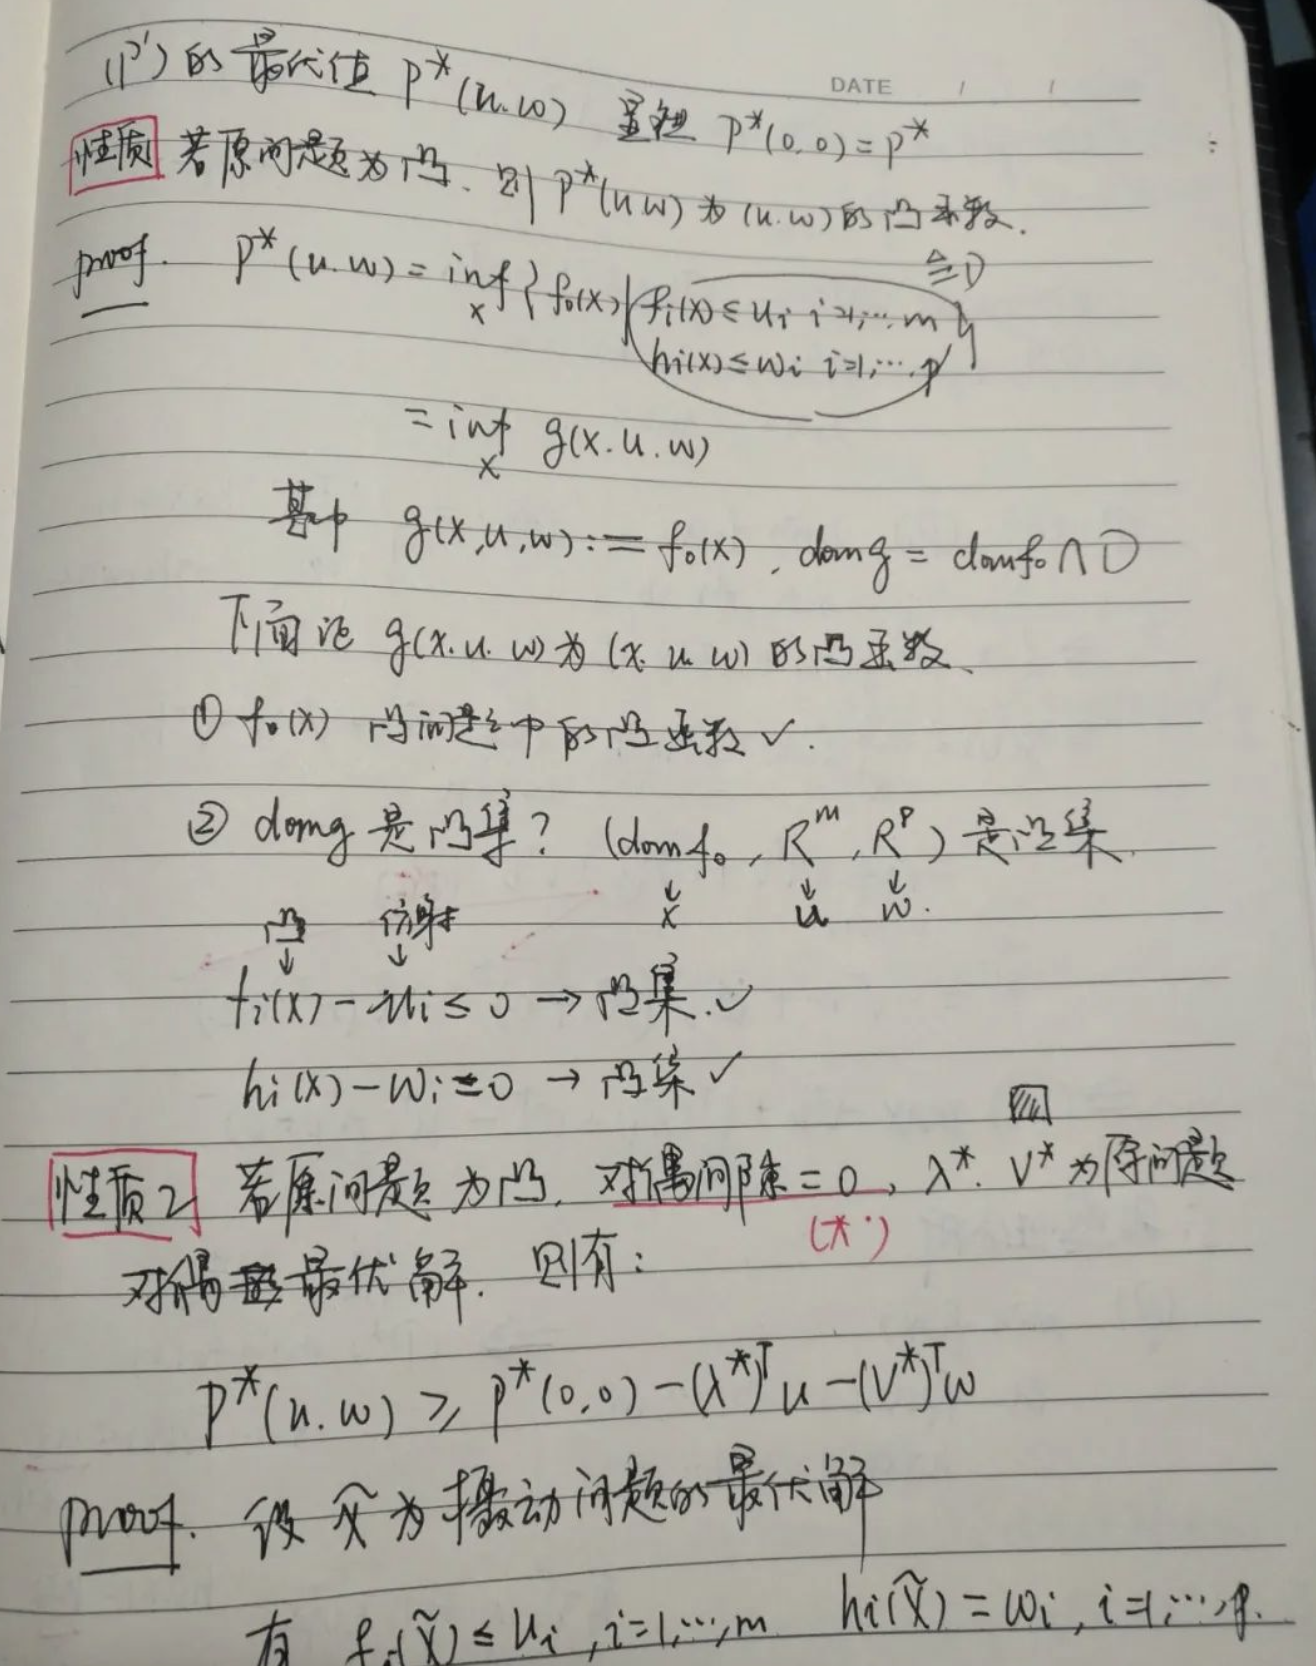 (P') 的最优值 P*(u.w) 显然 P*(0.0)=p*
DATE / /
性质 若原问题为凸. 则 P*(u w) 为 (u.w) 的凸函数.
proof. P*(u.w) = inf { f₀(x) | fi(x) ≤ ui i=1,…m }
x
≜D
hi(x) ≤ wi i=1,…,p
= inf g(x.u.w)
x
其中 g(x,u,w) := f₀(x). domg = domf₀∩D
下面证 g(x.u.w) 为 (x. u. w) 的凸函数.
① f₀(x) 凸问题中的凸函数 ✓.
② domg 是凸集? (domf₀, Rᵐ, Rᴾ) 是凸集.
↓ ↓ ↓
x u w.
凸 仿射
↓ ↓
fi(x) - ui ≤ 0 → 凸集. ✓
hi(x) - wi = 0 → 凸集 ✓
性质2 若原问题为凸. 对偶间隙=0, λ*. V* 为原问题
(*)
对偶 最优解. 则有:
P*(u.w) ≥ P*(0,0) - (λ*)ᵀu - (V*)ᵀw
proof. 设 x̃ 为摄动问题的最优解
有 fi(x̃) ≤ ui, i=1,…,m hi(x̃) = wi, i=1,…,p.